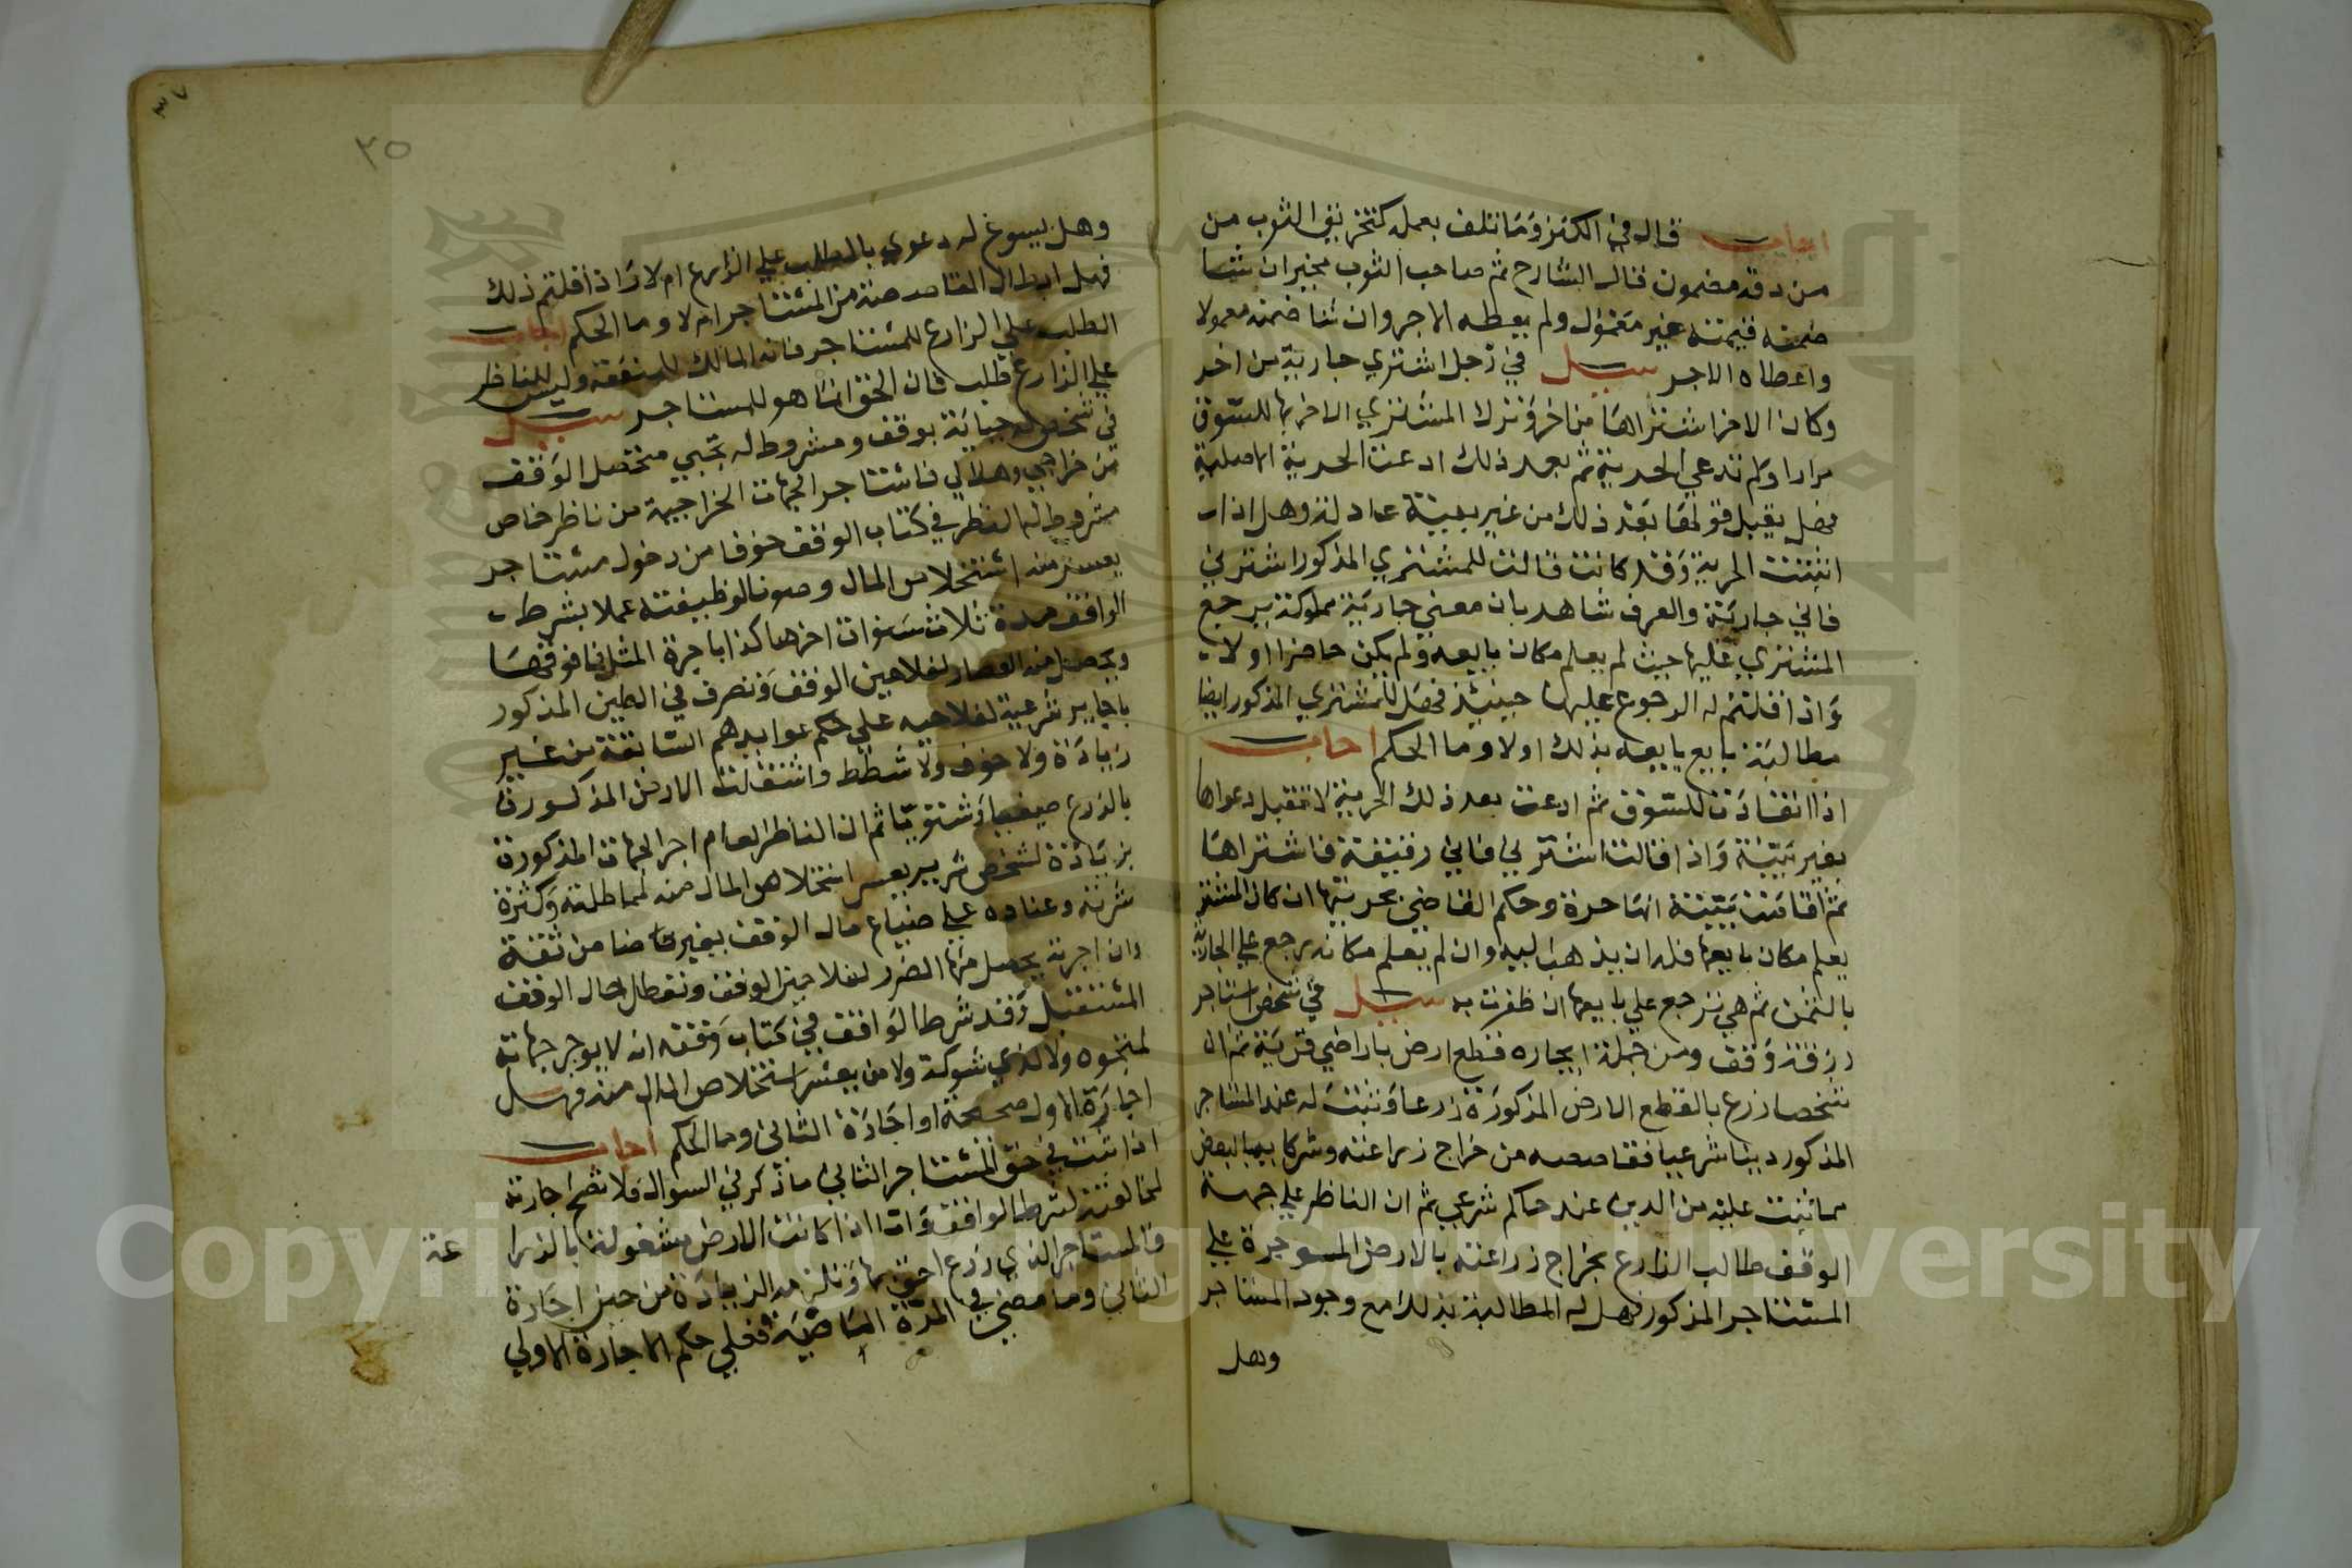 اجاب قال في الكنز وما تلف بعمله كتخريق الثوب من
من دقه مضمون قال الشارح ثم صاحب الثوب مخير ان شا
ضمنه قيمته غير معمول ولم يعطه الاجر وان شا ضمنه معمولا
واعطاه الاجر سيل في رجل اشتري جارية من اخر
وكان الاخر اشتراها من اخر ونزل المشتري الاخر بها للسوق
مرارا ولم تدعي الحرية ثم بعد ذلك ادعت الحرية الاصلية
فهل يقبل قولها بعد ذلك من غير بينة عادلة وهل اذا
اثبتت الحرية وقد كانت قالت للمشتري المذكور اشترني
فاني جارية والعرف شاهد بان معني جارية مملوكة يرجع
المشتري عليها حيث لم يعلم مكان بايعه ولم يكن حاضرا اولا
واذا قلتم له الرجوع عليها حينيذ فهل للمشتري المذكور ايضا
مطالبة بايع بايعه بذلك اولا وما الحكم اجاب
اذا انقادت للسوق ثم ادعت بعد ذلك الحرية لا تقبل دعواها
بغير بينة واذا قالت اشترني فاني رقيقة فاشتراها
ثم اقامت بينة انها حرة وحكم القاضي بحريتها ان كان المشتري
يعلم مكان بايعها فله ان يذهب اليه وان لم يعلم مكانه يرجع علي الجارية
بالثمن ثم هي ترجع علي بايعها ان ظفرت به سيل في شخص استاجر
رزقة وقف ومن جملة ايجاره قطع ارض باراضي قرية ثم ان
شخصا زرع بالقطع الارض المذكورة زرعا وثبت له عند المستاجر
المذكور دينا شرعيا فقاصصه من خراج زراعته وشركا بيها البعض
مما ثبت عليه من الدين عند حاكم شرعي ثم ان الناظر علي جهة
الوقف طالب الزارع بخراج زراعته بالارض الموجرة علي
المستاجر المذكور فهل له المطالبة بذلك مع وجود المستاجر
وهل
٣٧
٣٥
وهل يسوغ له دعوي بالطلب علي الزارع ام لا واذا قلتم ذلك
فهل ابطال المقاصصة من المستاجر ام لا وما الحكم اجاب
الطلب علي الزارع للمستاجر فانه المالك للمنفعة وليس للناظر
علي الزارع طلب فان الحق انما هو للمستاجر سيل
في شخص له جباية بوقف ومشروط له تجبي متحصل الوقف
من خراجي وهلالي فاستاجر الجهات الخراجية من ناظر خاص
مشروط له النظر في كتاب الوقف خوفا من دخول مستاجر
يعسر منه استخلاص المال وصونا لوظيفته عملا بشرط
الواقف مدة ثلاث سنوات اخرها كذا باجرة المثل فما فوقها
ويحصل منه العمار لفلاحين الوقف وتصرف في الطين المذكور
باجاير شرعية لفلاحيه علي حكم عوايدهم السابقة من غير
زيادة ولا خوف ولا شطط واشتغلت الارض المذكورة
بالزرع صيفيا وشتويا ثم ان الناظر العام اجر الجهات المذكورة
بزيادة لشخص شرير يعسر استخلاص المال منه لمماطلته وكثرة
شرته وعناده علي ضياع مال الوقف بغير ضامن ثقة
وان اجرته يحصل منها الضرر لفلاحين الوقف وتعطال حال الوقف
المستقبل وقد شرط الواقف في كتاب وقفه انه لا يوجر جهاته
لمتجوه ولا لذي شوكة ولا من يعسر استخلاص المال منه فهل
اجارة الاول صحيحة او اجارة الثاني وما الحكم اجاب
اذا ثبت في حق المستاجر الثاني ما ذكر في السوال فلا تصح اجارته
لمخالفته لشرط الواقف واما اذا كانت الارض مشغولة بالزرا عة
فالمستاجر الذي زرع احق بها وتلزمه الزيادة من حين اجارة
الثاني وما مضي في المدة الماضية فعلي حكم الاجارة الاولي
Copyright © King Saud University